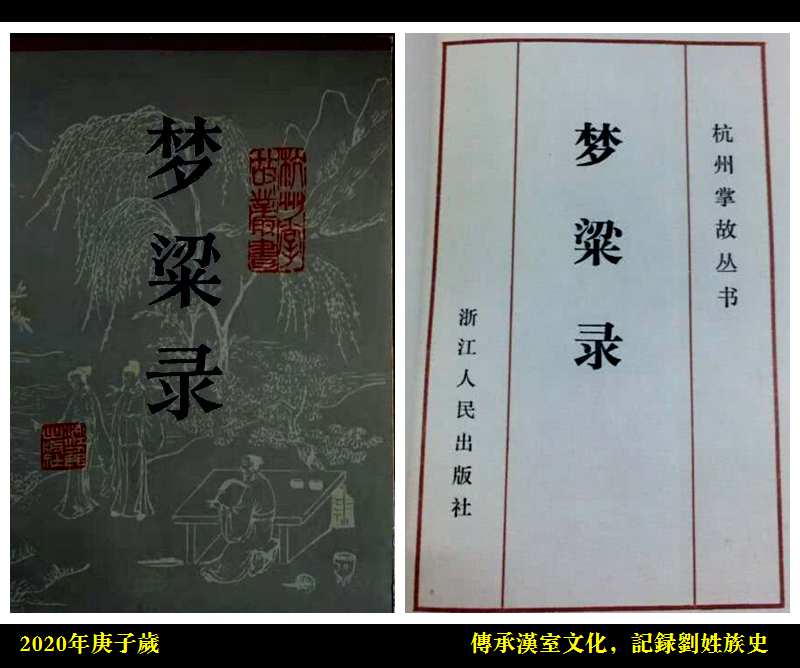 梦粱录
杭州掌
故叢書
浙江人民
出版社
杭州掌故丛书
梦粱录
浙江人民出版社
2020年庚子歲
傳承漢室文化，記録劉姓族史